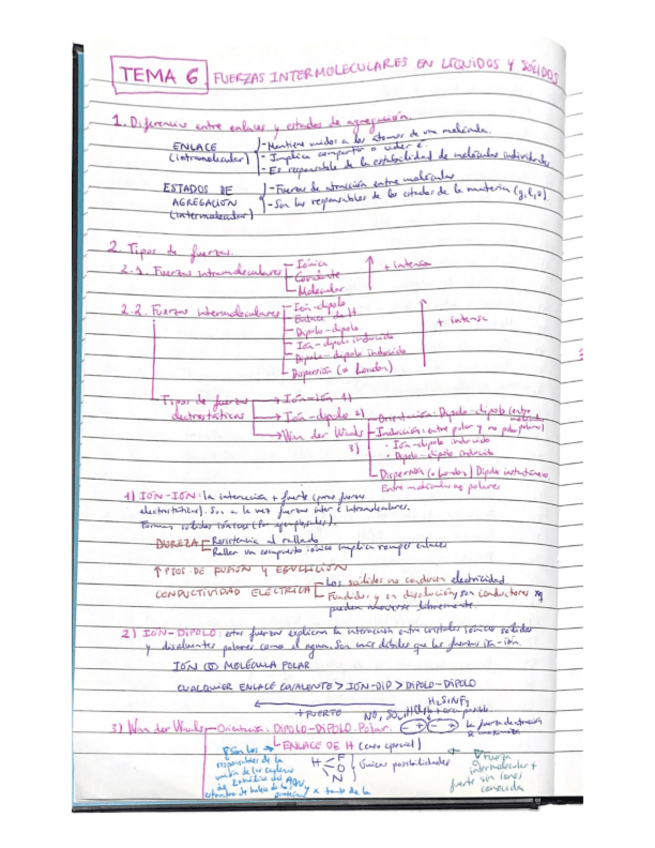 TEMA 6 FUERZAS INTERMOLECULARES EN LÍQUIDOS Y SÓLIDOS
1. Diferencias entre enlaces y estados de agregación.
ENLACE (intramolecular)
- Mantiene unidos a los átomos de una molécula.
- Implica compartir o ceder e-
- Es responsable de la estabilidad de moléculas individuales
ESTADOS DE AGREGACIÓN (intermolecular)
- Fuerzas de atracción entre moléculas
- Son las responsables de los estados de la materia (g, l, s)
2. Tipos de fuerzas.
2.1. Fuerzas intramoleculares
Iónica
Covalente
Molecular
+ intensa
2.2. Fuerzas intermoleculares
Ión-dipolo
Enlace de H
Dipolo-dipolo
Ión-dipolo inducido
Dipolo-dipolo inducido
Dispersión (o London)
+ intensa
Tipos de fuerzas electrostáticas
Ión-ión 1)
Ión-dipolo 2)
Van der Waals 3)
Orientación: Dipolo-dipolo (entre
Inducción: entre polar y no polar
• Ión-dipolo inducido
• Dipolo-dipolo inducido
Dispersión (o London) Dipolo instantáneo
Entre moléculas no polares
1) IÓN-ION: la interacción + fuerte (para fuerzas
electrostáticas). Son a la vez fuerzas inter e intramoleculares.
Forman sólidos iónicos (Por ejemplo, sales).
DUREZA
Resistencia al rallado
Rallar un compuesto iónico implica romper enlaces
↑ PTOS DE FUSIÓN Y EBULLICIÓN
CONDUCTIVIDAD ELÉCTRICA
Los sólidos no conducen electricidad
Fundidos y en disolución son conductores xq
pueden moverse libremente.
2) ION-DIPOLO: estas fuerzas explican la interacción entre cristales iónicos sólidos
y disolventes polares como el agua. Son más débiles que las fuerzas ión-ión.
IÓN MOLÉCULA POLAR
CUALQUIER ENLACE COVALENTE > ION-DIP > DIPOLO-DIPOLO
+ FUERTE
3) Van der Waals
Orientación: DIPOLO-DIPOLO. Polar.
ENLACE DE H (caso especial)
H F O N únicas posibilidades
Son los responsables de la
Fuerza intermolecular +
fuerte sin iones
conocida